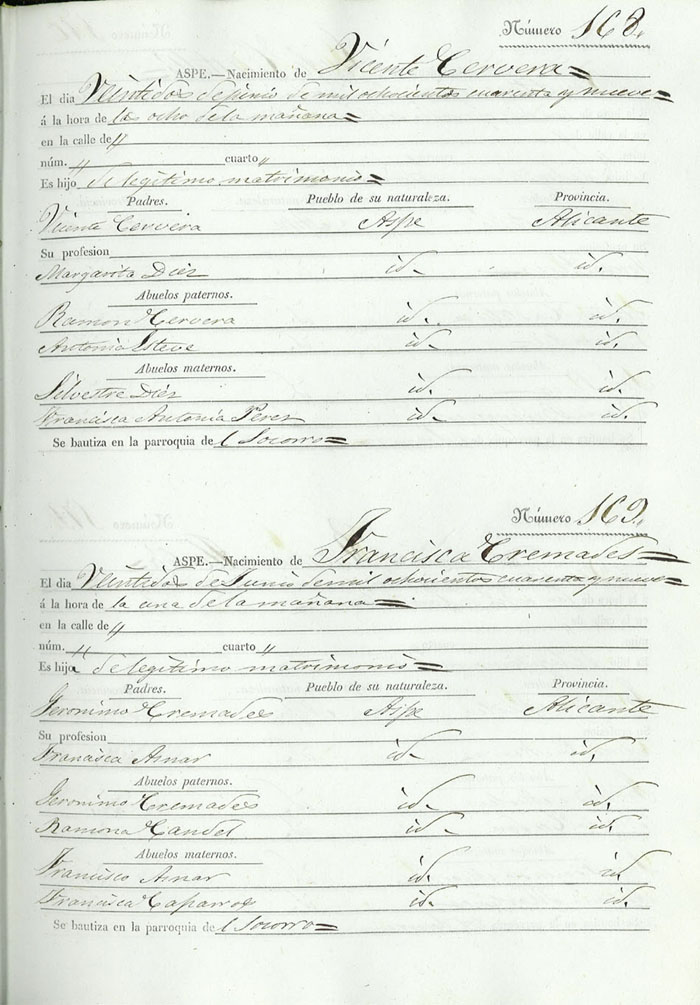 Número 168.
ASPE.—Nacimiento de Vicente Cervera=
El dia Veintidos de junio de mil ochocientos cuarenta y nueve=
á la hora de las ocho de la mañana=
en la calle de "
núm. " cuarto "
Es hijo de legítimo matrimonio=
Padres. Pueblo de su naturaleza. Provincia.
Vicente Cervera Aspe Alicante
Su profesion
Margarita Diez id. id.
Abuelos paternos.
Ramon Cervera id. id.
Antonia Esteve id. id.
Abuelos maternos.
Silvestre Diez id. id.
Francisca Antonia Perez id. id.
Se bautiza en la parroquia de l Socorro=
Número 169.
ASPE.—Nacimiento de Francisca Cremades=
El dia Veintidos de Junio de mil ochocientos cuarenta y nueve=
á la hora de la una de la mañana=
en la calle de "
núm. " cuarto "
Es hija de legítimo matrimonio=
Padres. Pueblo de su naturaleza. Provincia.
Geronimo Cremades Aspe Alicante
Su profesion
Francisca Aznar id. id.
Abuelos paternos.
Geronimo Cremades id. id.
Ramona Candel id. id.
Abuelos maternos.
Francisco Aznar id. id.
Francisca Caparros id. id.
Se bautiza en la parroquia de l Socorro=